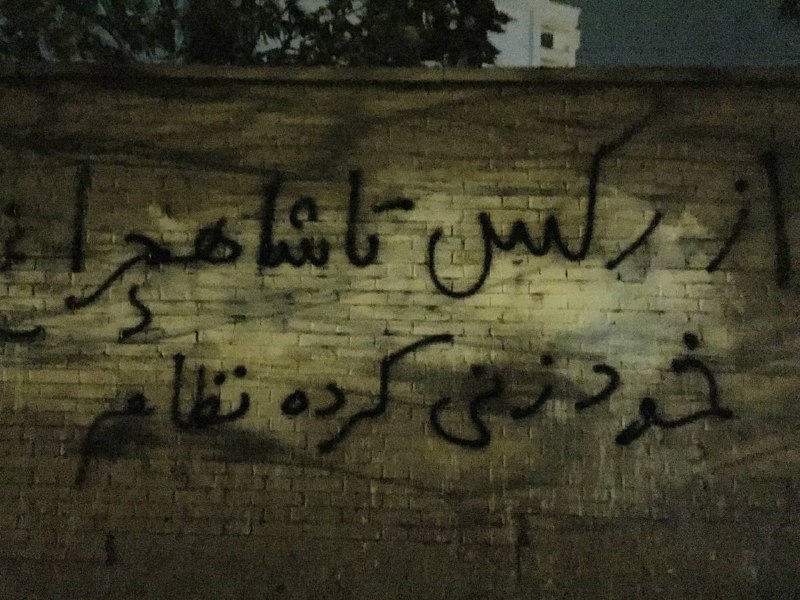 از رکس تا شاهچراغ
خود زنی کرده نظام